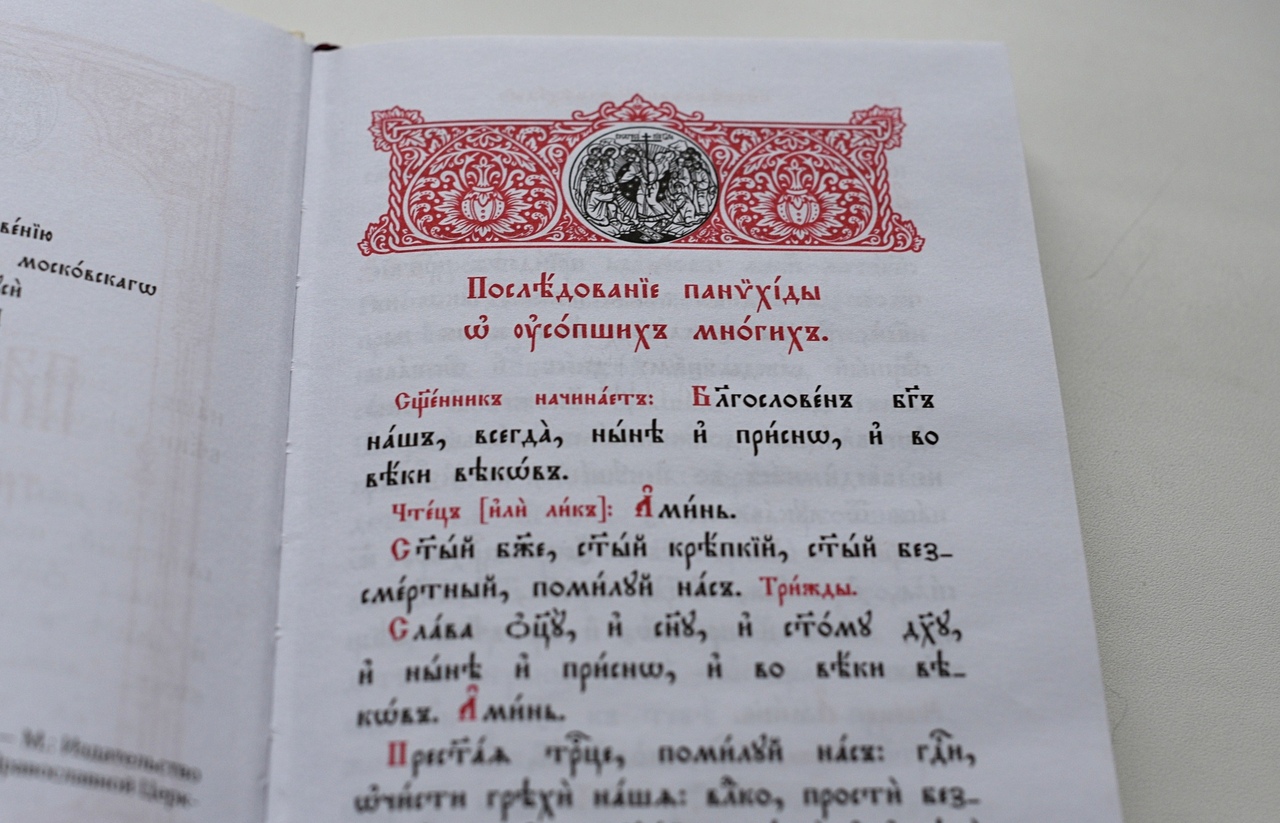 ве́нїю
моско́вскагѡ
– М.: Издательство
Православной Церк-
Послѣ́дованїе панѷхі́ды
ѡ҆ ᲂу҆со́пшихъ мно́гихъ.
Сщ҃е́нникъ начина́етъ: Бл҃гослове́нъ бг҃ъ
на́шъ, всегда̀, ны́нѣ и҆ при́снѡ, и҆ во
вѣ́ки вѣкѡ́въ.
Чте́цъ [и҆лѝ ли́къ]: А҆ми́нь.
Ст҃ы́й бж҃е, ст҃ы́й крѣ́пкїй, ст҃ы́й без_
сме́ртный, поми́лꙋй на́съ. Три́жды.
Сла́ва ѻ҆ц҃ꙋ̀, и҆ сн҃ꙋ, и҆ ст҃о́мꙋ дх҃ꙋ,
и҆ ны́нѣ и҆ при́снѡ, и҆ во вѣ́ки вѣ_
кѡ́въ. А҆ми́нь.
Прест҃а́ѧ трⷪ҇це, поми́лꙋй на́съ: гдⷭ҇и,
ѡ҆чи́сти грѣхѝ на́шѧ: влⷣко, простѝ без_